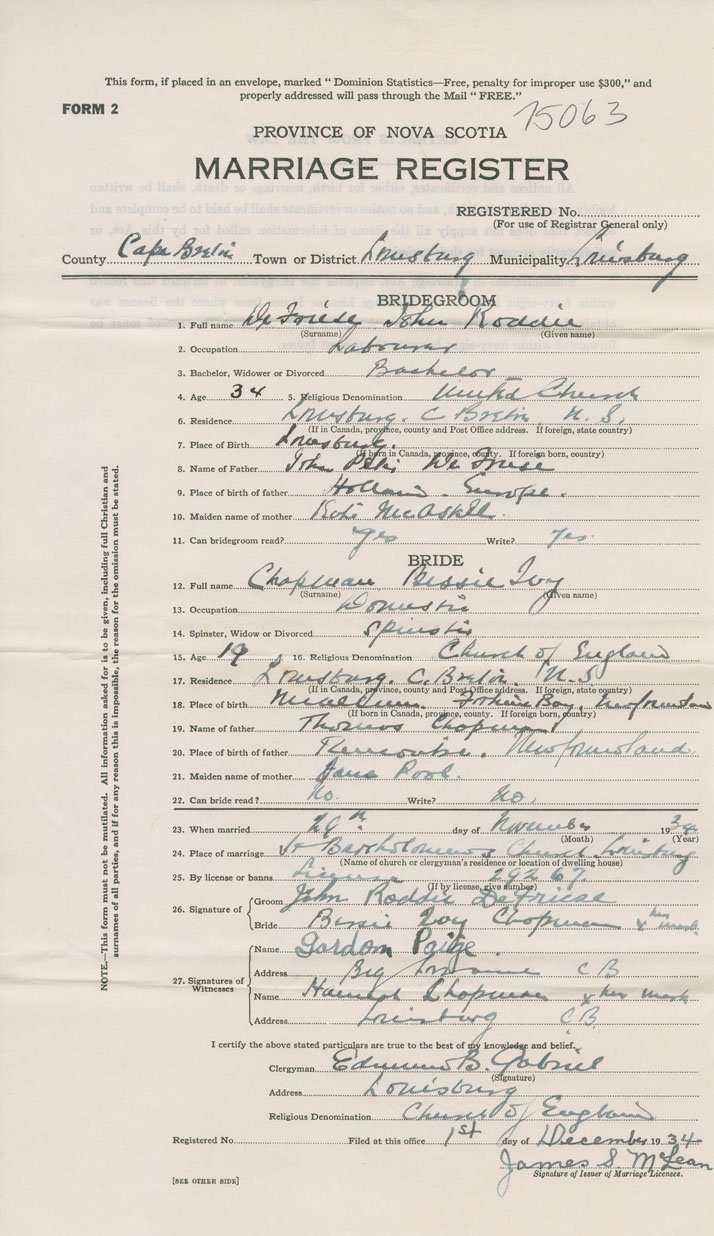 This form, if placed in an envelope, marked " Dominion Statistics—Free, penalty for improper use $300," and
properly addressed will pass through the Mail " FREE."
FORM 2
15063
PROVINCE OF NOVA SCOTIA
MARRIAGE REGISTER
REGISTERED No.
(For use of Registrar General only)
County Cape Breton Town or District Louisburg Municipality Louisburg
BRIDEGROOM
1. Full name De Friese John Roddie
(Surname) (Given name)
2. Occupation Labourer
3. Bachelor, Widower or Divorced Bachelor
4. Age 34 5. Religious Denomination United Church
6. Residence Louisburg. C Breton N. S.
(If in Canada, province, county and Post Office address. If foreign, state country)
7. Place of Birth Louisburg.
(If born in Canada, province, county. If foreign born, country)
8. Name of Father John Peter De Friese
9. Place of birth of father Holland. Europe.
10. Maiden name of mother McAskill.
11. Can bridegroom read? Yes Write? Yes.
BRIDE
12. Full name Chapman Bessie Ivy
(Surname) (Given name)
13. Occupation Domestic
14. Spinster, Widow or Divorced Spinster
15. Age 19 16. Religious Denomination Church of England
17. Residence Louisburg. C. Breton. N. S
(If in Canada, province, county and Post Office address. If foreign, state country)
18. Place of birth Bay, Newfoundland
(If born in Canada, province, county. If foreign born, country)
19. Name of father Thomas Chapman
20. Place of birth of father Newfoundland
21. Maiden name of mother Jane Pool.
22. Can bride read? No. Write? No.
23. When married 29th day of November 1934
(Month) (Year)
24. Place of marriage St Bartholomew's Church Louisburg
(Name of church or clergyman's residence or location of dwelling house)
25. By license or banns License 29267
(If by license, give number)
26. Signature of Groom John Roddie DeFriese
Bride Bessie Ivy Chapman x her mark
27. Signatures of Witnesses
Name Gordon Paige.
Address Big Lorraine C B
Name Hannah Chapman x her mark
Address Louisburg C.B.
I certify the above stated particulars are true to the best of my knowledge and belief.
Clergyman Edmund B. Gabriel
(Signature)
Address Louisburg
Religious Denomination Church of England
Registered No. Filed at this office 1st day of December 1934
James S. McLean
Signature of Issuer of Marriage Licenses.
[SEE OTHER SIDE]
NOTE.—This form must not be mutilated. All information asked for is to be given, including full Christian and
surnames of all parties, and if for any reason this is impossible, the reason for the omission must be stated.